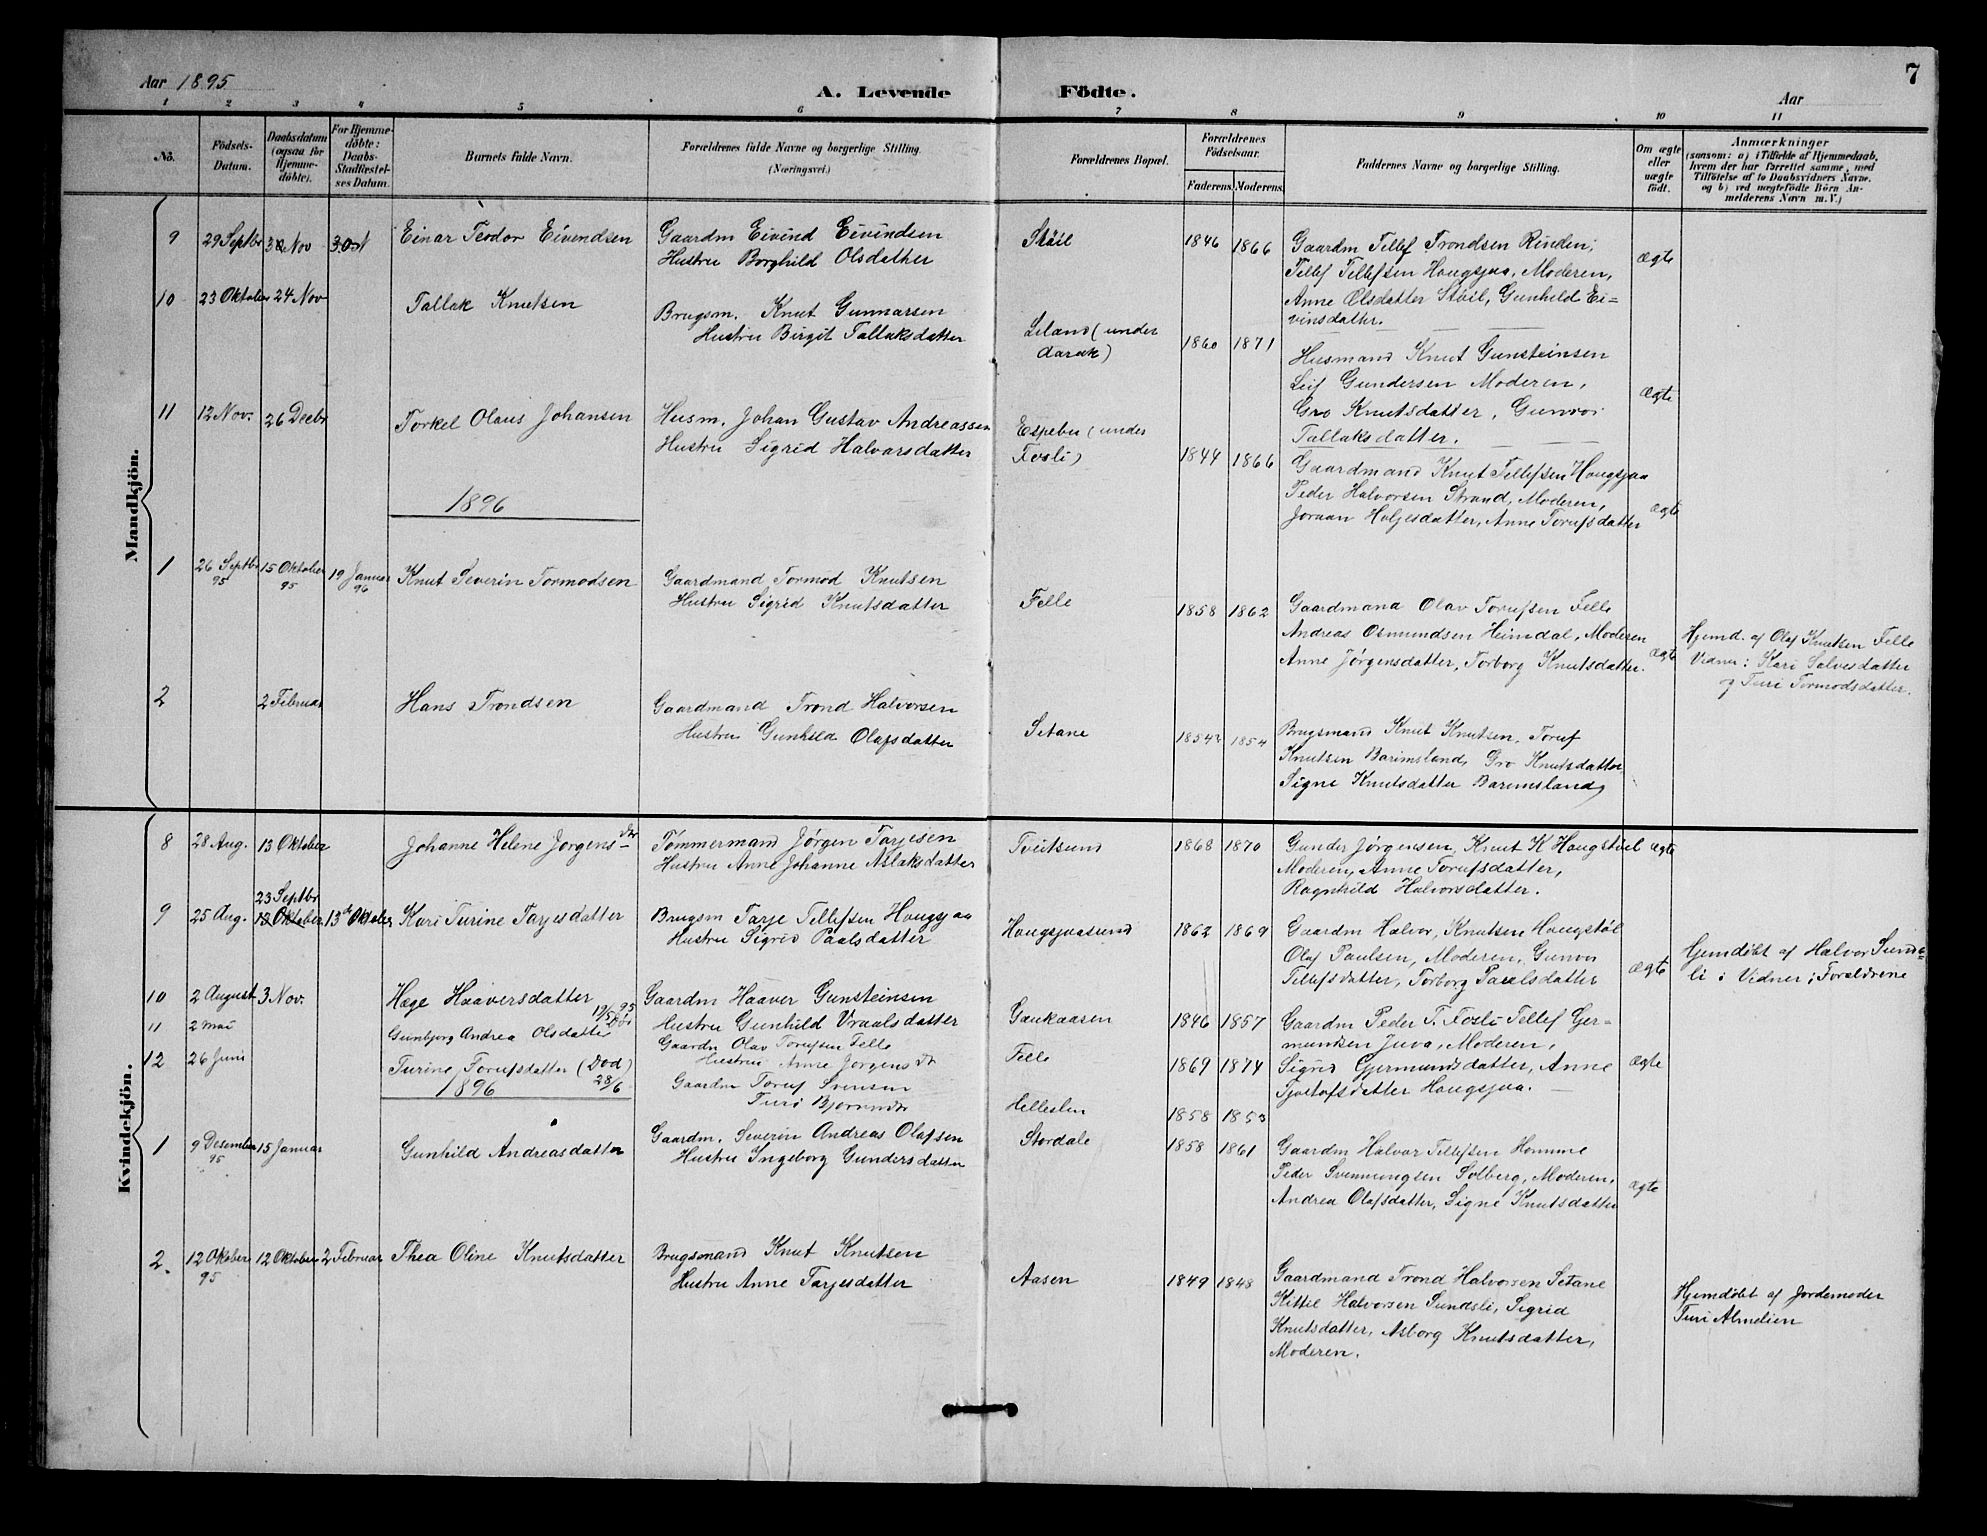 Aar 1895
A. Levende Födte.
Aar
7
1 2 3 4 5 6 7 8 9 10 11
No.
Födsels-Datum.
Daabsdatum (ogsaa for Hjemme-döbte).
For Hjemme-döbte: Daabs-Stadfæstel-ses Datum.
Barnets fulde Navn.
Forældrenes fulde Navne og borgerlige Stilling. (Næringsvei.)
Forældrenes Bopæl.
Forældrenes Födselsaar.
Faderens. Moderens.
Faddernes Navne og borgerlige Stilling.
Om ægte eller uægte födt.
Anmærkninger
(saasom: a) i Tilfælde af Hjemmedaab, hvem der har forrettet samme, med Tilföielse af to Daabsvidners Navne. og b) ved uægtefödte Börn An-melderens Navn m. V.)
Mandkjön.
9 29 Septbr 30 Nov 30 N Einar Teodor Eivendsen Gaardm Eivind Eivindsen Støil 1846 1866 Gaardm Tellef Trondsen Rinden, ægte
Hustru Borghild Olsdatter Tellef Tellefsen Hougsjaa, Moderen,
Anne Olsdatter Støil, Gunhild Ei-
vinsdatter.
10 23 Oktober 24 Nov Tallak Knutsen Brugsm. Knut Gunnarsen Leland (under 1860 1871 Husmand Knut Gunsteinsen ægte
Hustru Birgit Tallaksdatter Leif Gundersen Moderen,
Gro Knutsdatter, Gunvor
Tallaksdatter.
11 12 Nov. 26 Decbr Torkel Olaus Johansen Husm. Johan Gustav Andreassen Espebu (under Fosli) 1844 1866 Gaardmand Knut Tellefsen Hougsjaa ægte
Hustru Sigrid Halvorsdatter Peder Halvorsen Strand, Moderen,
Joraan Holjesdatter, Anne Torufsdatter
1896
1 26 Septbr 95 15 Oktober 95 19 Januar 96 Knut Severin Tormodsen Gaardmand Tormod Knutsen Felle 1858 1862 Gaardmand Olav Torufsen Felle ægte Hjemd. af Olaf Knutsen Felle
Hustru Sigrid Knutsdatter Andreas Osmundsen Heimdal, Moderen Vidner: Kari Salvesdatter
Anne Jørgensdatter, Torborg Knutsdatter. og Turi Tormodsdatter.
2 2 Februar Hans Trondsen Gaardmand Trond Halvorsen Setane 1854 1854 Brugsmand Knut Knutsen, Toruf
Hustru Gunhild Olafsdatter Knutsen Barimsland, Gro Knutsdatter
Signe Knutsdatter Barimsland,
Kvindekjön.
8 28 Aug. 13 Oktober Johanne Helene Jørgensdtr Tømmermand Jørgen Tarjesen Tveitsund 1868 1870 Gunder Jørgensen, Knut K Hougstøil ægte
Hustru Anne Johanne Aslaksdatter Moderen, Anne Torufsdatter,
Ragnhild Halvorsdatter.
9 25 Aug. 23 Septbr 13 Oktober 13de Oktober Kari Turine Tarjesdatter Brugsm Tarje Tellefsen Hougsjaa Hougsjaasund 1862 1869 Gaardm Halvor, Knutsen Hougstøl ægte Hjemdøbt af Halvor Sunds-
Hustru Sigrid Paalsdatter Olaf Paulsen, Moderen, Gunvor li: Vidner: Forældrene
Tellefsdatter, Torborg Paalsdatter
10 2 August 3 Nov. Hæge Haaversdatter Gaardm Haaver Gunsteinsen Gaukaasen 1846 1857 Gaardm Peder T. Fosli Tellef Ger- ægte
Hustru Gunhild Vraalsdatter mundsen Juva, Moderen,
11 2 Mai Gunbjorg Andrea Olsdatter 19/5 95 Død Gaardm Olav Torufsen Felle Felle 1869 1874 Sigrid Gjermundsdatter, Anne
Hustru Anne Jørgensdtr Tjostofsdatter Hougsjaa.
12 26 Juni Turine Torufsdatter (Død) 28/6 Gaardm Toruf Svensen 1858 1853
Turi Bjørnsdtr
1896
1 9 Desember 95 15 Januar Gunhild Andreasdatter Gaardm. Severin Andreas Olafsen Stordale 1858 1861 Gaardm Halvor Tellefsen Homme ægte
Hustru Ingeborg Gundersdatter Peder Svennungsen Solberg, Moderen,
Andrea Olafsdatter, Signe Knutsdatter
2. 12 Oktober 95 12 Oktober 2 Februar Thea Oline Knutsdatter Brugsmand Knut Knutsen Aasen 1849 1848 Gaardmand Trond Halvorsen Setane Hjemdøbt af Jordemoder
Hustru Anne Tarjesdatter Kittil Halvorsen Sundsli, Sigrid Turi Almelien
Knutsdatter, Asborg Knutsdatter,
Moderen.